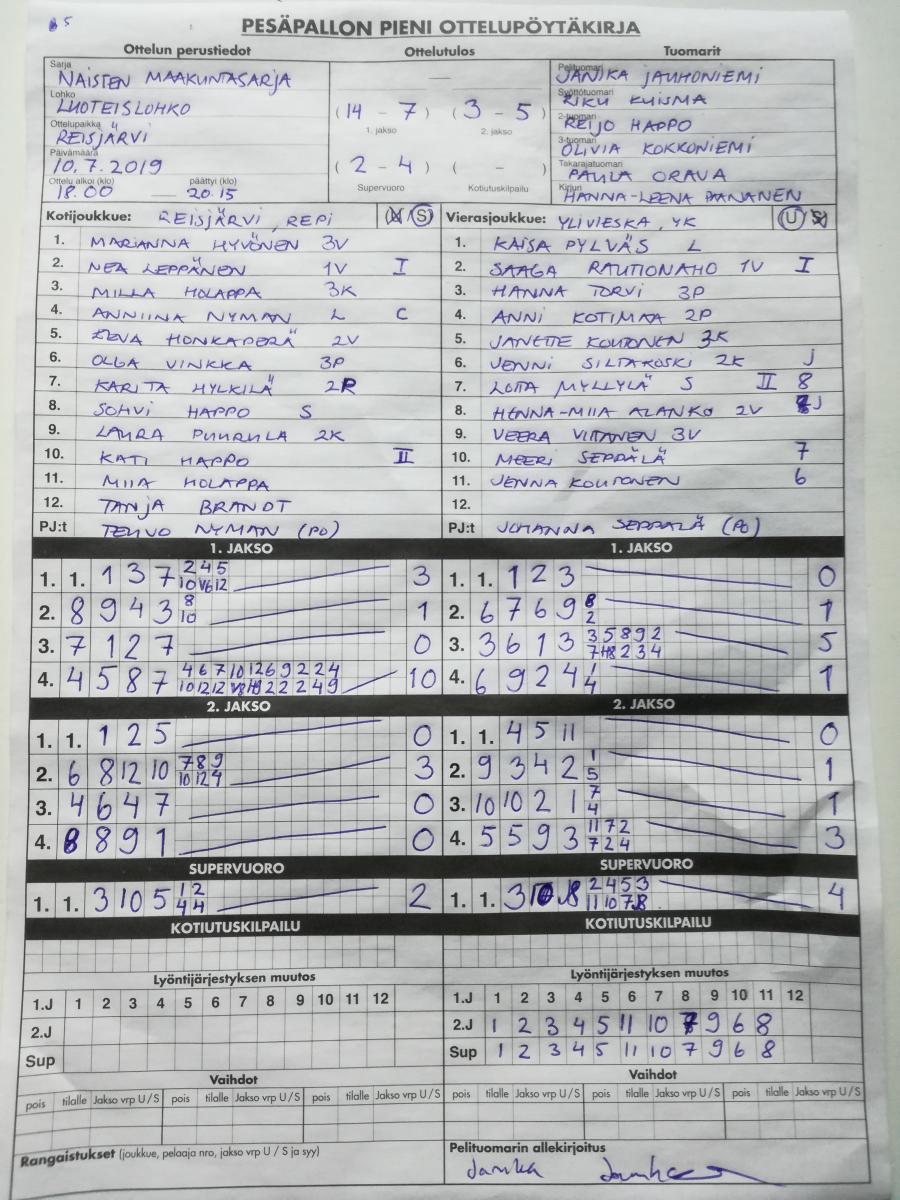 PESÄPALLON PIENI OTTELUPÖYTÄKIRJA
Ottelun perustiedot Ottelutulos Tuomarit
Sarja NAISTEN MAAKUNTASARJA
Lohko LUOTEISLOHKO
Ottelupaikka REISJÄRVI
Päivämäärä 10.7.2019
Ottelu alkoi (klo) 18.00 päättyi (klo) 20.15
(14 - 7) (3 - 5)
1. jakso 2. jakso
(2 - 4) ( - )
Supervuoro Kotiutuskilpailu
Pelituomari JANIKA JAUHONIEMI
Syöttötuomari RIKU KUISMA
2-tuomari REIJO HAPPO
3-tuomari OLIVIA KOKKONIEMI
Takarajatuomari PAULA ORAVA
Kirjuri HANNA-LEENA PAANANEN
Kotijoukkue: REISJÄRVI, REPI S
1. MARIANNA HYVÖNEN 3V
2. NEA LEPPÄNEN 1V I
3. MILLA HOLAPPA 3K
4. ANNIINA NYMAN L C
5. EEVA HONKAPERÄ 2V
6. OLGA VINKKA 3P
7. KARITA HYLKILÄ 2P
8. SOHVI HAPPO S
9. LAURA PUURULA 2K
10. KATI HAPPO II
11. MIIA HOLAPPA
12. TANJA BRANDT
PJ:t TEUVO NYMAN (PO)
Vierasjoukkue: YLIVIESKA, YK U
1. KAISA PYLVÄS L
2. SAAGA RAUTIONAHO 1V I
3. HANNA TORVI 3P
4. ANNI KOTIMAA 2P
5. JANETTE KOUTONEN 3K
6. JENNI SILTAKOSKI 2K J
7. LOTTA MYLLYLÄ S II 8
8. HENNA-MIIA ALANKO 2V J
9. VEERA VIITANEN 3V
10. MEERI SEPPÄLÄ 7
11. JENNA KOUTONEN 6
12.
PJ:t JOHANNA SEPPÄLÄ (PO)
1. JAKSO
1. 1. 1 3 7 2 4 5 3
10 V6 12
2. 8 9 4 3 8 1
10
3. 7 1 2 7 0
4. 4 5 8 7 4 6 7 10 12 6 9 2 2 4 10
1. JAKSO
1. 1. 1 2 3 0
2. 6 7 6 9 8 1
2
3. 3 6 1 3 3 5 8 9 2 5
4. 6 9 2 4 1 1
4
2. JAKSO
1. 1. 1 2 5 0
2. 6 8 12 10 7 8 9 3
10 12 4
3. 4 6 4 7 0
4. 8 8 9 1 0
2. JAKSO
1. 1. 4 5 11 0
2. 9 3 4 2 1 1
5
3. 10 10 2 1 7 1
4
4. 5 5 9 3 11 7 2 3
7 2 4
SUPERVUORO
1. 1. 3 10 5 1 2 2
4 4
SUPERVUORO
1. 1. 3 10 8 2 4 5 3 4
11 10 7 8
KOTIUTUSKILPAILU
KOTIUTUSKILPAILU
Lyöntijärjestyksen muutos
1.J 1 2 3 4 5 6 7 8 9 10 11 12
2.J
Sup
Lyöntijärjestyksen muutos
1.J 1 2 3 4 5 6 7 8 9 10 11 12
2.J 1 2 3 4 5 11 10 7 9 6 8
Sup 1 2 3 4 5 11 10 7 9 6 8
Vaihdot
pois tilalle Jakso vrp U / S pois tilalle Jakso vrp U / S pois tilalle Jakso vrp U / S
Vaihdot
pois tilalle Jakso vrp U / S pois tilalle Jakso vrp U / S pois tilalle Jakso vrp U / S
Rangaistukset (joukkue, pelaaja nro, jakso vrp U / S ja syy)
Pelituomarin allekirjoitus